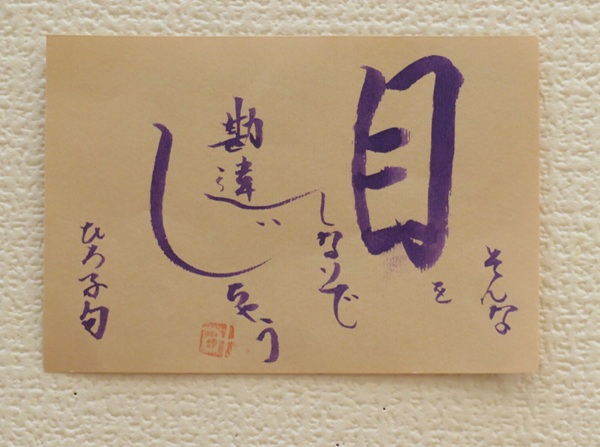 そんな
目を
しないで
勘違い
しちゃう
ひろ子句